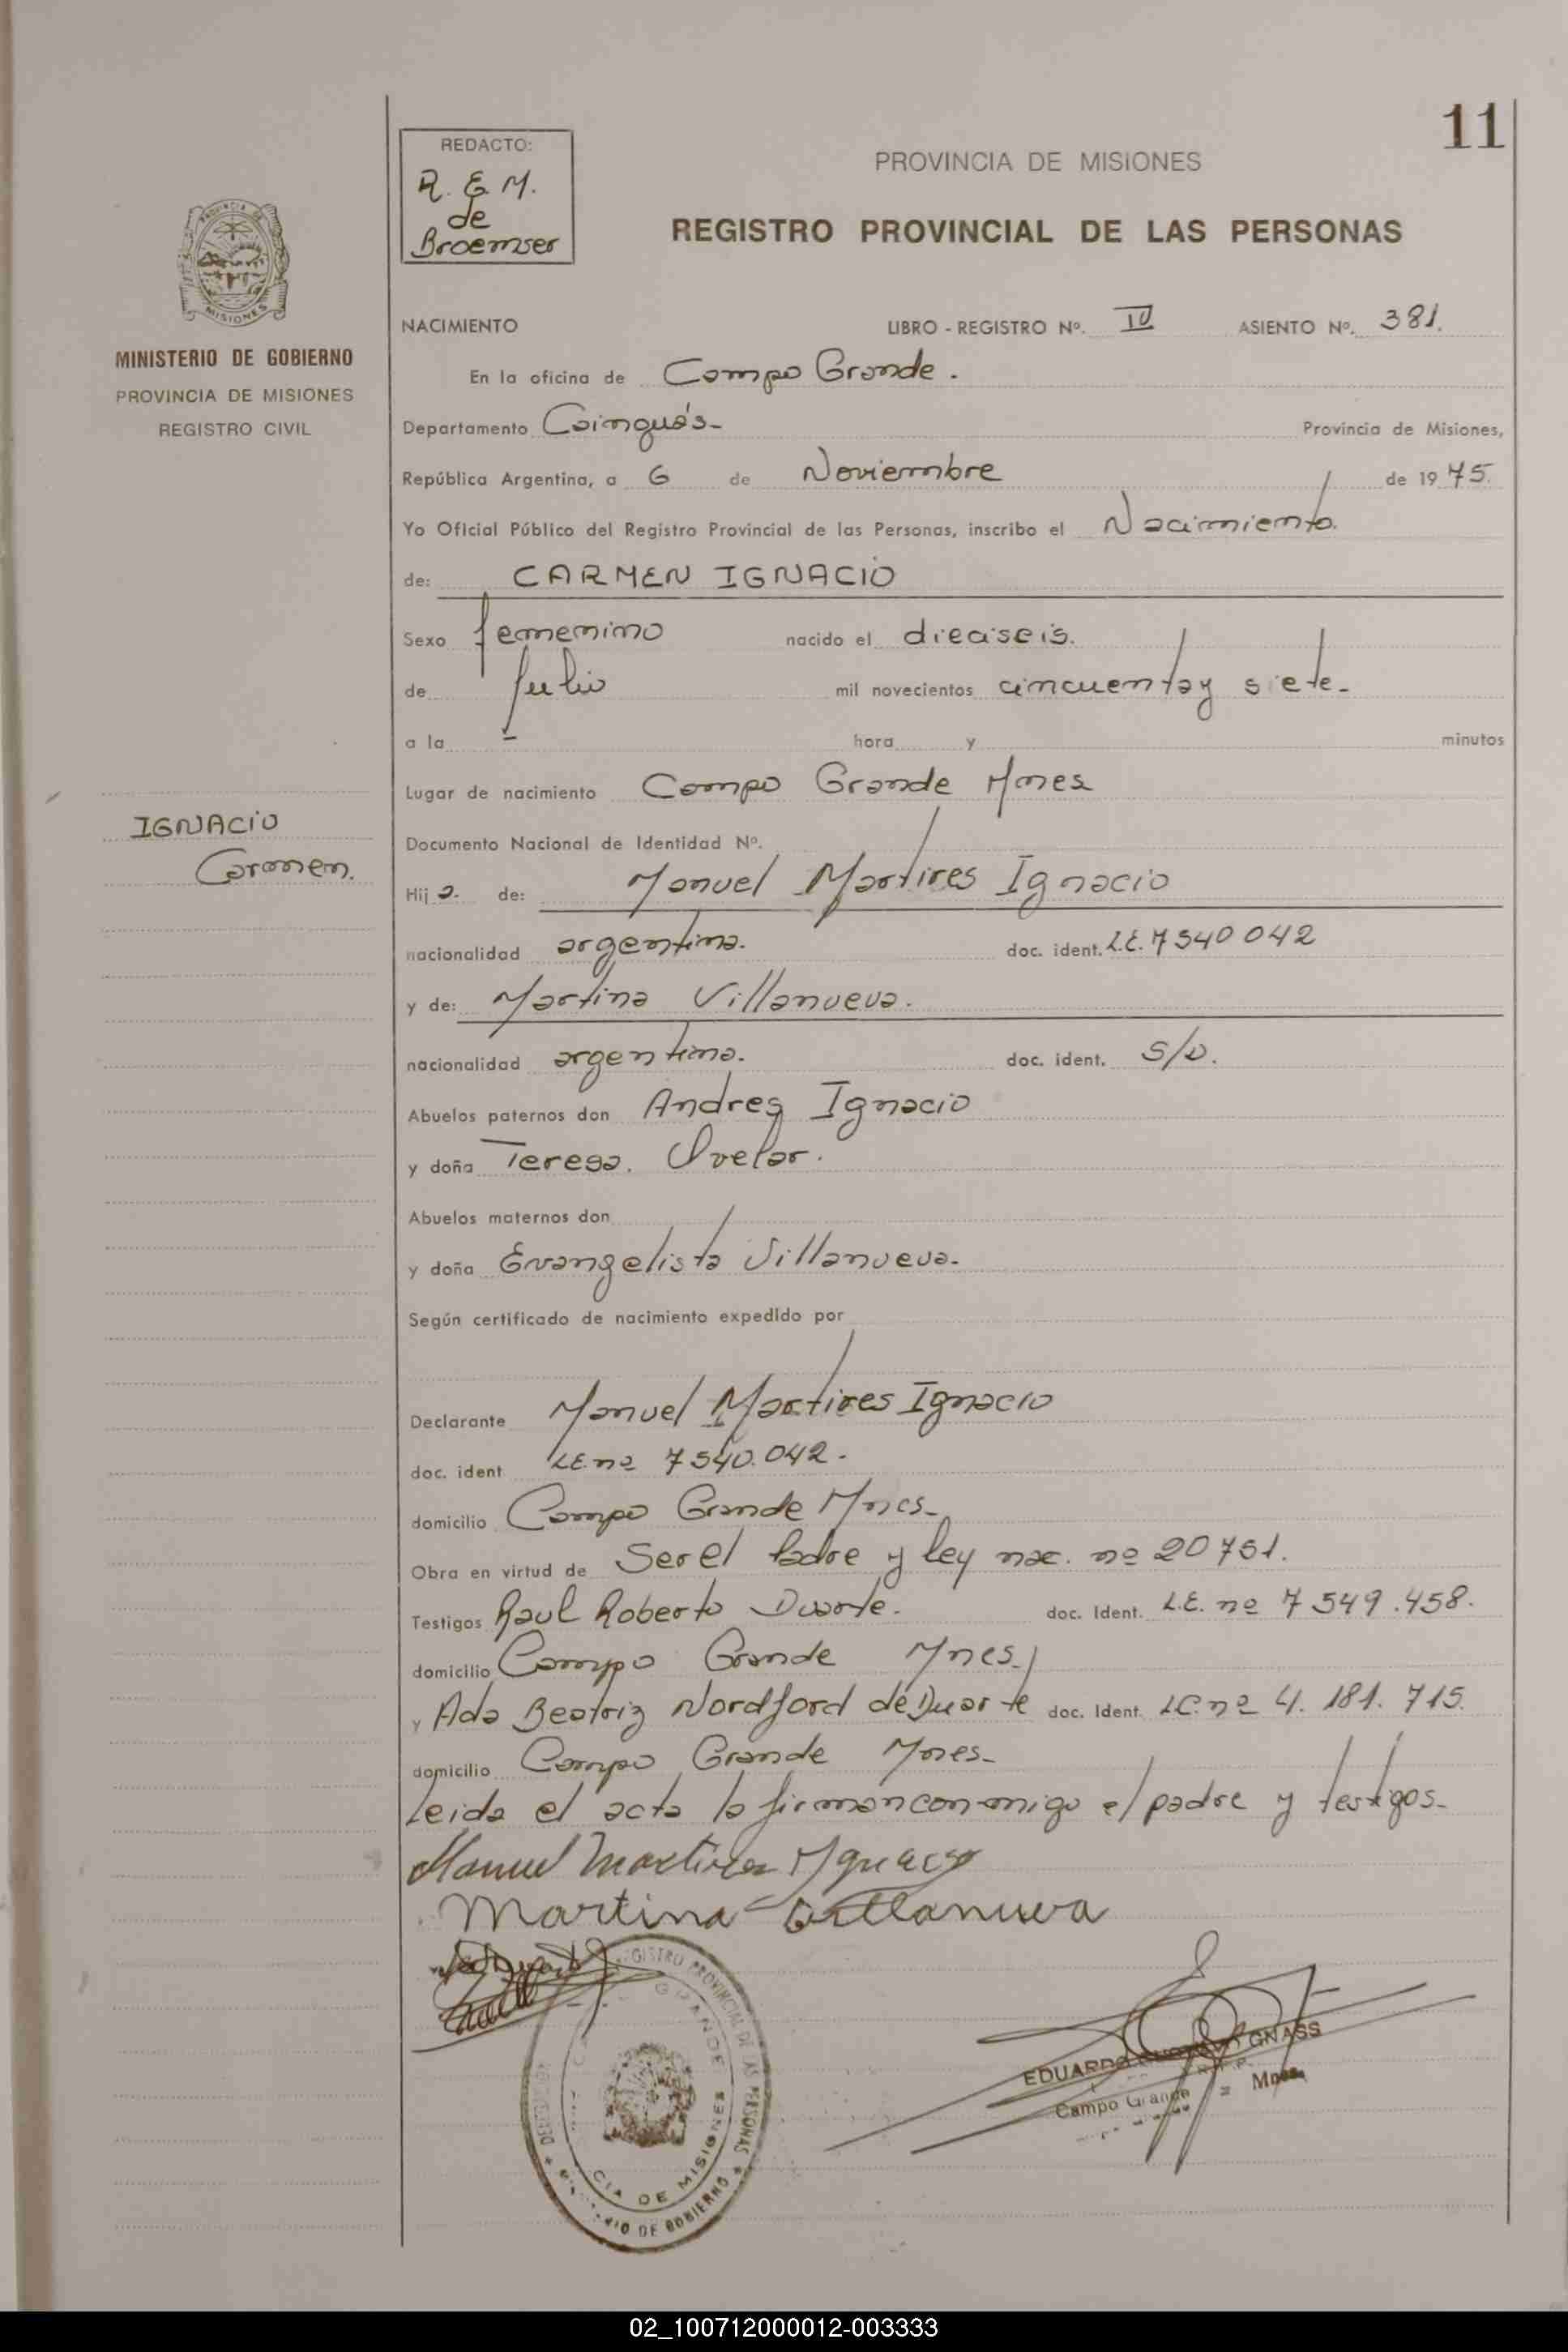 11
REDACTO:
R. E. M.
de
Broemser
PROVINCIA DE MISIONES
REGISTRO PROVINCIAL DE LAS PERSONAS
PROVINCIA DE
MISIONES
MINISTERIO DE GOBIERNO
PROVINCIA DE MISIONES
REGISTRO CIVIL
NACIMIENTO LIBRO - REGISTRO Nº. IV ASIENTO Nº. 381.
En la oficina de Campo Grande.
Departamento Cainguás- Provincia de Misiones,
República Argentina, a 6 de Noviembre de 1975.
Yo Oficial Público del Registro Provincial de las Personas, inscribo el Nacimiento.
de: CARMEN IGNACIO
Sexo femenino nacido el dieciseis.
de Julio mil novecientos cincuenta y siete-
a la - hora y minutos
Lugar de nacimiento Campo Grande Mnes
IGNACIO
Carmen.
Documento Nacional de Identidad Nº.
Hija. de: Manuel Martires Ignacio
nacionalidad argentina. doc. ident. L.E. 7540042
y de: Martina Villanueva.
nacionalidad argentina. doc. ident. S/D.
Abuelos paternos don Andres Ignacio
y doña Teresa. Ovelar.
Abuelos maternos don
y doña Evangelista Villanueva-
Según certificado de nacimiento expedido por
Declarante Manuel Martires Ignacio
doc. ident L.E. nº 7540.042.
domicilio Campo Grande Mnes-
Obra en virtud de Ser el Padre y ley nac. nº 20751.
Testigos Raul Roberto Duarte. doc. Ident. L.E. nº 7549.458.
domicilio Campo Grande Mnes.
y Ada Beatriz Nordford de Duarte doc. Ident. LC. nº 4.181.715.
domicilio Campo Grande Mnes-
Leida el acta la firman conmigo el padre y testigos-
Manuel Martires Ygnacio
Martina Villanueva
REGISTRO PROVINCIAL DE LAS PERSONAS
GRANDE
CIA DE MISIONES
DE GOBIERNO
EDUARDO GNASS
Campo Grande = Mnes.
02_100712000012-003333